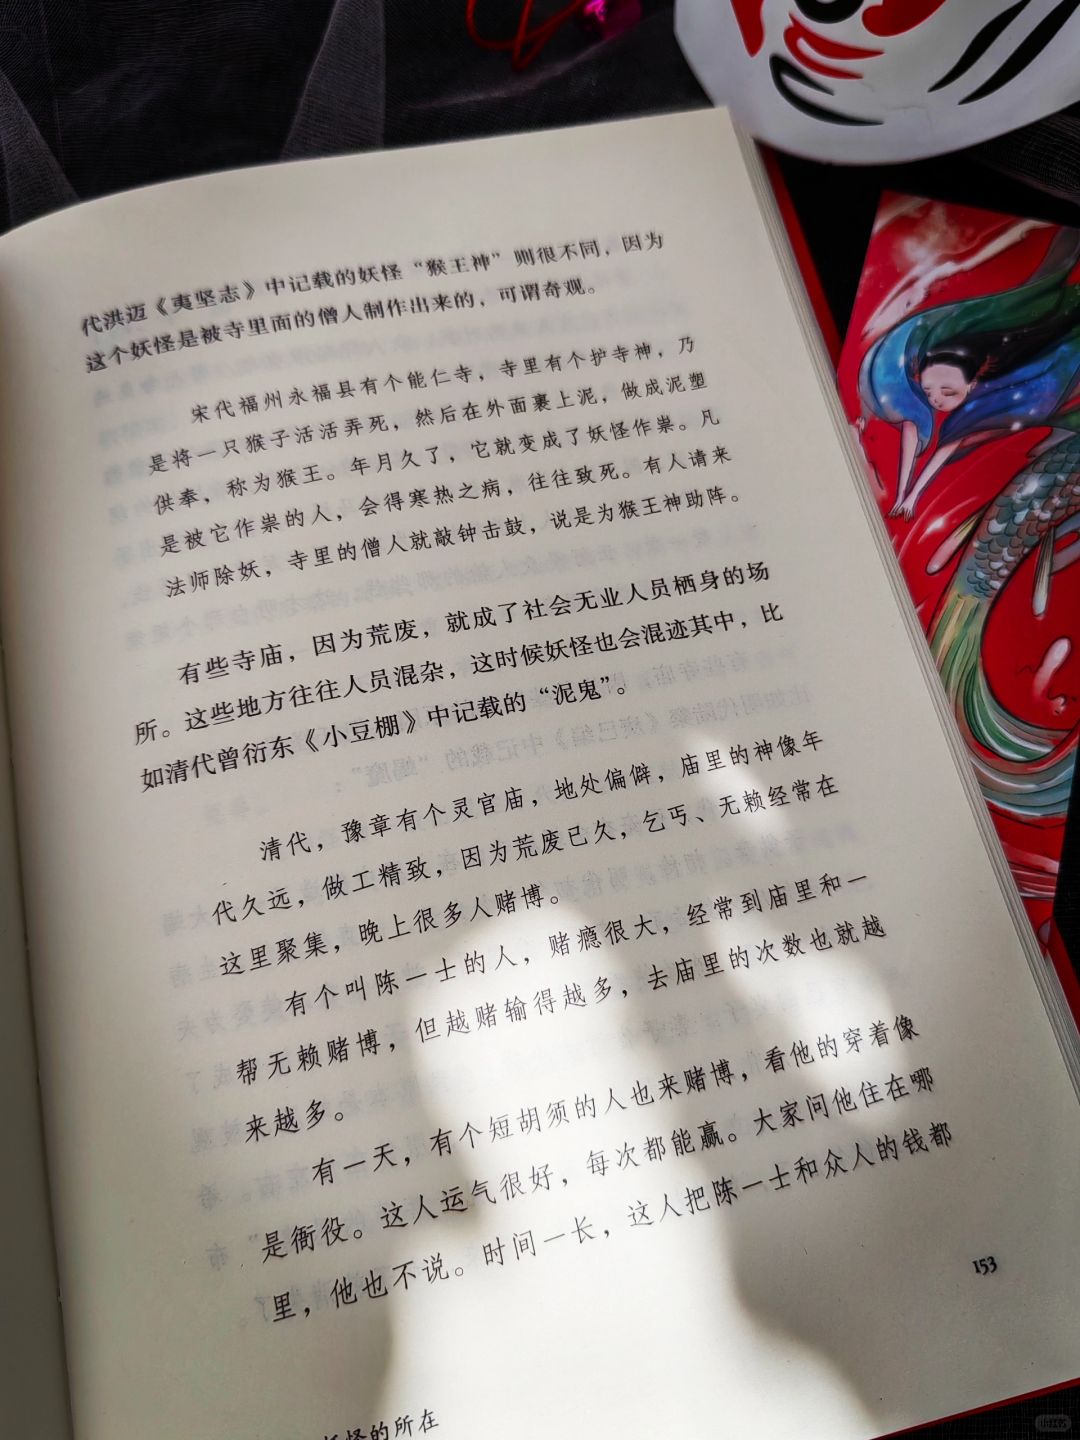 代洪迈《夷坚志》中记载的妖怪“猴王神”则很不同，因为
这个妖怪是被寺里面的僧人制作出来的，可谓奇观。
宋代福州永福县有个能仁寺，寺里有个护寺神，乃
是将一只猴子活活弄死，然后在外面裹上泥，做成泥塑
供奉，称为猴王。年月久了，它就变成了妖怪作祟。凡
是被它作祟的人，会得寒热之病，往往致死。有人请来
法师除妖，寺里的僧人就敲钟击鼓，说是为猴王神助阵。
有些寺庙，因为荒废，就成了社会无业人员栖身的场
所。这些地方往往人员混杂，这时候妖怪也会混迹其中，比
如清代曾衍东《小豆棚》中记载的“泥鬼”。
清代，豫章有个灵官庙，地处偏僻，庙里的神像年
代久远，做工精致，因为荒废已久，乞丐、无赖经常在
这里聚集，晚上很多人赌博。
有个叫陈一士的人，赌瘾很大，经常到庙里和一
帮无赖赌博，但越赌输得越多，去庙里的次数也就越
来越多。
有一天，有个短胡须的人也来赌博，看他的穿着像
是衙役。这人运气很好，每次都能赢。大家问他住在哪
里，他也不说。时间一长，这人把陈一士和众人的钱都
153
妖怪的所在
小红书